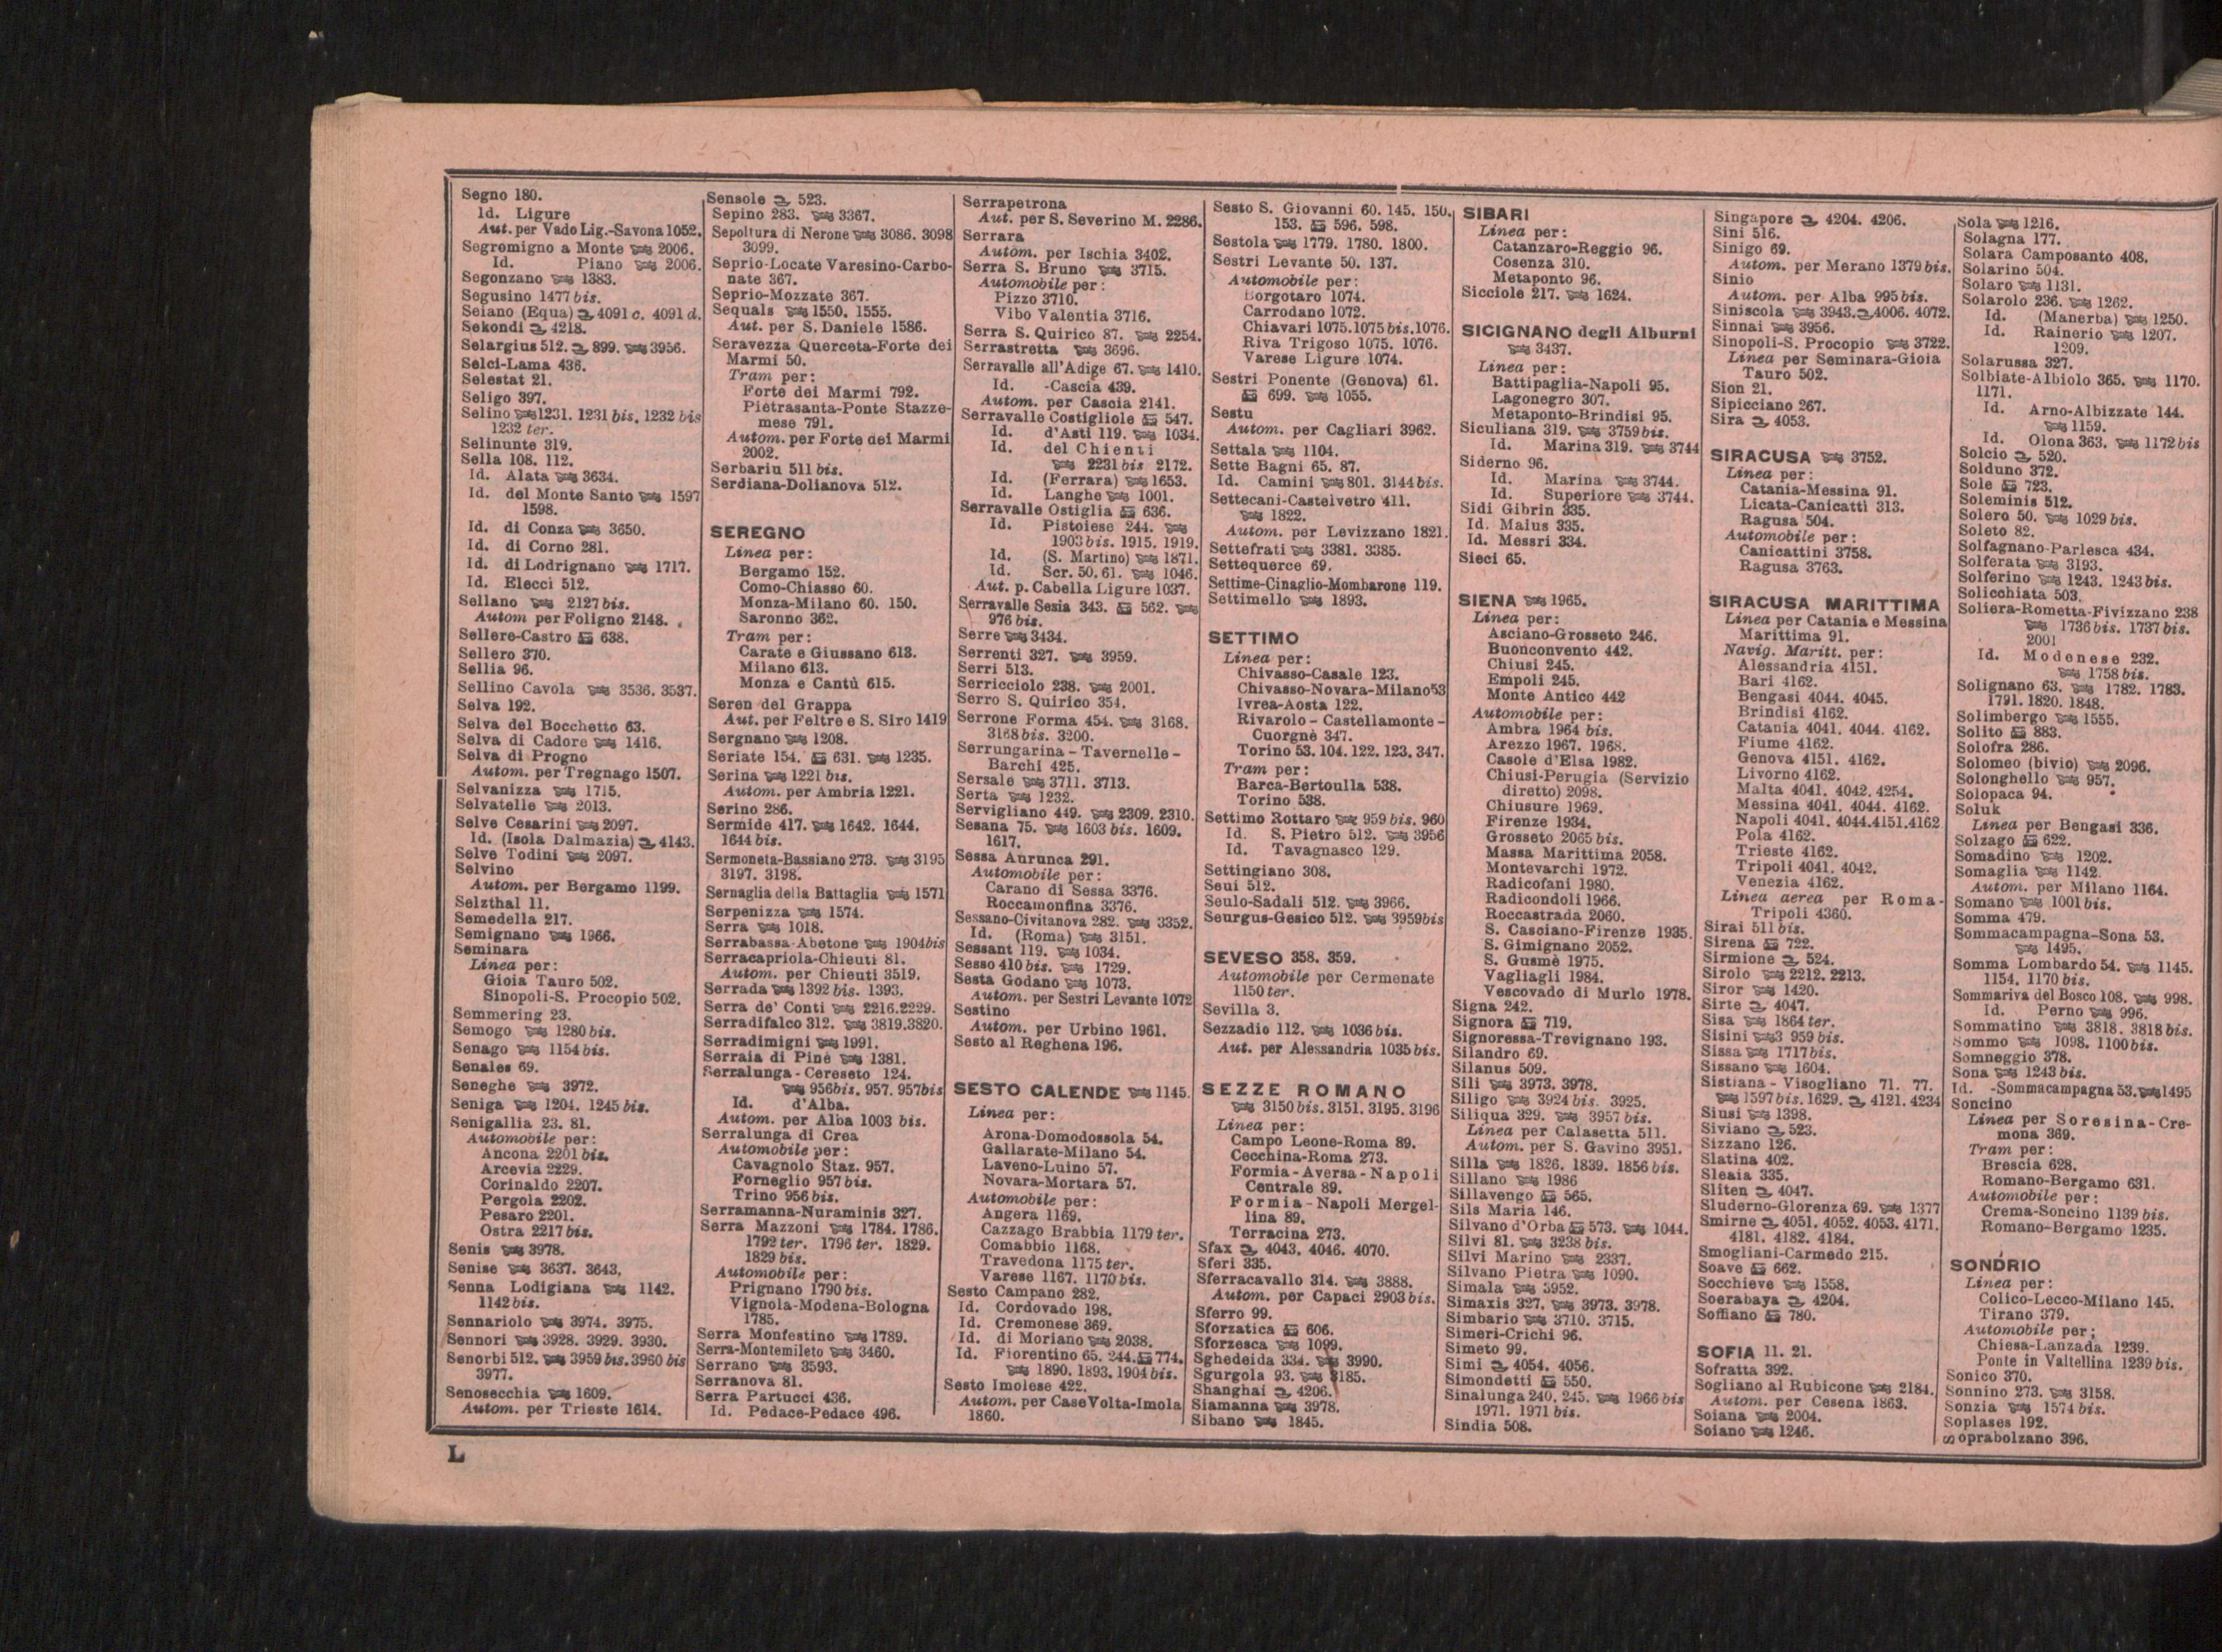 Segno 180.
Id. Ligure
Aut. per Vado Lig.-Savona 1052.
Segromigno a Monte 2006.
Id. Piano 2006.
Segonzano 1383.
Segusino 1477 bis.
Seiano (Equa) 4091 c. 4091 d.
Sekondi 4218.
Selargius 512. 899. 3956.
Selci-Lama 436.
Selestat 21.
Seligo 397.
Selino 1231. 1231 bis. 1232 bis
1232 ter.
Selinunte 319.
Sella 108. 112.
Id. Alata 3634.
Id. del Monte Santo 1597
1598.
Id. di Conza 3650.
Id. di Corno 281.
Id. di Lodrignano 1717.
Id. Elecci 512.
Sellano 2127 bis.
Autom per Foligno 2148.
Sellere-Castro 638.
Sellero 370.
Sellia 96.
Sellino Cavola 3536. 3537.
Selva 192.
Selva del Bocchetto 63.
Selva di Cadore 1416.
Selva di Progno
Autom. per Tregnago 1507.
Selvanizza 1715.
Selvatelle 2013.
Selve Cesarini 2097.
Id. (Isola Dalmazia) 4143.
Selve Todini 2097.
Selvino
Autom. per Bergamo 1199.
Selzthal 11.
Semedella 217.
Semignano 1966.
Seminara
Linea per:
Gioia Tauro 502.
Sinopoli-S. Procopio 502.
Semmering 23.
Semogo 1280 bis.
Senago 1154 bis.
Senales 69.
Seneghe 3972.
Seniga 1204. 1245 bis.
Senigallia 23. 81.
Automobile per:
Ancona 2201 bis.
Arcevia 2229.
Corinaldo 2207.
Pergola 2202.
Pesaro 2201.
Ostra 2217 bis.
Senis 3978.
Senise 3637. 3643.
Senna Lodigiana 1142.
1142 bis.
Sennariolo 3974. 3975.
Sennori 3928. 3929. 3930.
Senorbi 512. 3959 bis. 3960 bis
3977.
Senosecchia 1609.
Autom. per Trieste 1614.
L
Sensole 523.
Sepino 283. 3367.
Sepoltura di Nerone 3086. 3098
3099.
Seprio-Locate Varesino-Carbo-
nate 367.
Seprio-Mozzate 367.
Sequals 1550. 1555.
Aut. per S. Daniele 1586.
Seravezza Querceta-Forte dei
Marmi 50.
Tram per:
Forte dei Marmi 792.
Pietrasanta-Ponte Stazze-
mese 791.
Autom. per Forte dei Marmi
2002.
Serbariu 511 bis.
Serdiana-Dolianova 512.
SEREGNO
Linea per:
Bergamo 152.
Como-Chiasso 60.
Monza-Milano 60. 150.
Saronno 362.
Tram per:
Carate e Giussano 613.
Milano 613.
Monza e Cantù 615.
Seren del Grappa
Aut. per Feltre e S. Siro 1419
Sergnano 1208.
Seriate 154. 631. 1235.
Serina 1221 bis.
Autom. per Ambria 1221.
Serino 286.
Sermide 417. 1642. 1644.
1644 bis.
Sermoneta-Bassiano 273. 3195
3197. 3198.
Sernaglia della Battaglia 1571
Serpenizza 1574.
Serra 1018.
Serrabassa-Abetone 1904 bis
Serracapriola-Chieuti 81.
Autom. per Chieuti 3519.
Serrada 1392 bis. 1393.
Serra de' Conti 2216.2229.
Serradifalco 312. 3819.3820.
Serradimigni 1991.
Serraia di Pinè 1381.
Serralunga-Cereseto 124.
956bis. 957. 957bis
Id. d'Alba.
Autom. per Alba 1003 bis.
Serralunga di Crea
Automobile per:
Cavagnolo Staz. 957.
Forneglio 957 bis.
Trino 956 bis.
Serramanna-Nuraminis 327.
Serra Mazzoni 1784. 1786.
1792 ter. 1796 ter. 1829.
1829 bis.
Automobile per:
Prignano 1790 bis.
Vignola-Modena-Bologna
1785.
Serra Monfestino 1789.
Serra-Montemileto 3460.
Serrano 3593.
Serranova 81.
Serra Partucci 436.
Id. Pedace-Pedace 496.
Serrapetrona
Aut. per S. Severino M. 2286.
Serrara
Autom. per Ischia 3402.
Serra S. Bruno 3715.
Automobile per:
Pizzo 3710.
Vibo Valentia 3716.
Serra S. Quirico 87. 2254.
Serrastretta 3696.
Serravalle all'Adige 67. 1410.
Id. -Cascia 439.
Autom. per Cascia 2141.
Serravalle Costigliole 547.
Id. d'Asti 119. 1034.
Id. del Chienti
2231 bis 2172.
Id. (Ferrara) 1653.
Id. Langhe 1001.
Serravalle Ostiglia 636.
Id. Pistoiese 244.
1903 bis. 1915. 1919.
Id. (S. Martino) 1871.
Id. Scr. 50. 61. 1046.
Aut. p. Cabella Ligure 1037.
Serravalle Sesia 343. 562.
976 bis.
Serre 3434.
Serrenti 327. 3959.
Serri 513.
Serricciolo 238. 2001.
Serro S. Quirico 354.
Serrone Forma 454. 3168.
3168 bis. 3200.
Serrungarina-Tavernelle-
Barchi 425.
Sersale 3711. 3713.
Serta 1232.
Servigliano 449. 2309. 2310.
Sesana 75. 1603 bis. 1609.
1617.
Sessa Aurunca 291.
Automobile per:
Carano di Sessa 3376.
Roccamonfina 3376.
Sessano-Civitanova 282. 3352.
Id. (Roma) 3151.
Sessant 119. 1034.
Sesso 410 bis. 1729.
Sesta Godano 1073.
Autom. per Sestri Levante 1072
Sestino
Autom. per Urbino 1961.
Sesto al Reghena 196.
SESTO CALENDE 1145.
Linea per:
Arona-Domodossola 54.
Gallarate-Milano 54.
Laveno-Luino 57.
Novara-Mortara 57.
Automobile per:
Angera 1169.
Cazzago Brabbia 1179 ter.
Comabbio 1168.
Travedona 1175 ter.
Varese 1167. 1170 bis.
Sesto Campano 282.
Id. Cordovado 198.
Id. Cremonese 369.
Id. di Moriano 2038.
Id. Fiorentino 65. 244. 774.
1890. 1893. 1904 bis.
Sesto Imolese 422.
Autom. per Case Volta-Imola
1860.
Sesto S. Giovanni 60. 145. 150.
153. 596. 598.
Sestola 1779. 1780. 1800.
Sestri Levante 50. 137.
Automobile per:
Borgotaro 1074.
Carrodano 1072.
Chiavari 1075.1075 bis.1076.
Riva Trigoso 1075. 1076.
Varese Ligure 1074.
Sestri Ponente (Genova) 61.
699. 1055.
Sestu
Autom. per Cagliari 3962.
Settala 1104.
Sette Bagni 65. 87.
Id. Camini 801. 3144 bis.
Settecani-Castelvetro 411.
1822.
Autom. per Levizzano 1821.
Settefrati 3381. 3385.
Settequerce 69.
Settime-Cinaglio-Mombarone 119.
Settimello 1893.
SETTIMO
Linea per:
Chivasso-Casale 123.
Chivasso-Novara-Milano53
Ivrea-Aosta 122.
Rivarolo-Castellamonte-
Cuorgnè 347.
Torino 53. 104. 122. 123. 347.
Tram per:
Barca-Bertoulla 538.
Torino 538.
Settimo Rottaro 959 bis. 960
Id. S. Pietro 512. 3956
Id. Tavagnasco 129.
Settingiano 308.
Seui 512.
Seulo-Sadali 512. 3966.
Seurgus-Gesico 512. 3959bis
SEVESO 358. 359.
Automobile per Cermenate
1150 ter.
Sevilla 3.
Sezzadio 112. 1036 bis.
Aut. per Alessandria 1035 bis.
SEZZE ROMANO
3150 bis. 3151. 3195. 3196
Linea per:
Campo Leone-Roma 89.
Cecchina-Roma 273.
Formia-Aversa-Napoli
Centrale 89.
Formia-Napoli Mergel-
lina 89.
Terracina 273.
Sfax 4043. 4046. 4070.
Sferi 335.
Sferracavallo 314. 3888.
Autom. per Capaci 2903 bis.
Sferro 99.
Sforzatica 606.
Sforzesca 1099.
Sghedeida 334. 3990.
Sgurgola 93. 3185.
Shanghai 4206.
Siamanna 3978.
Sibano 1845.
SIBARI
Linea per:
Catanzaro-Reggio 96.
Cosenza 310.
Metaponto 96.
Sicciole 217. 1624.
SICIGNANO degli Alburni
3437.
Linea per:
Battipaglia-Napoli 95.
Lagonegro 307.
Metaponto-Brindisi 95.
Siculiana 319. 3759 bis.
Id. Marina 319. 3744
Siderno 96.
Id. Marina 3744.
Id. Superiore 3744.
Sidi Gibrin 335.
Id. Maius 335.
Id. Messri 334.
Sieci 65.
SIENA 1965.
Linea per:
Asciano-Grosseto 246.
Buonconvento 442.
Chiusi 245.
Empoli 245.
Monte Antico 442
Automobile per:
Ambra 1964 bis.
Arezzo 1967. 1968.
Casole d'Elsa 1982.
Chiusi-Perugia (Servizio
diretto) 2098.
Chiusure 1969.
Firenze 1934.
Grosseto 2065 bis.
Massa Marittima 2058.
Montevarchi 1972.
Radicofani 1980.
Radicondoli 1966.
Roccastrada 2060.
S. Casciano-Firenze 1935.
S. Gimignano 2052.
S. Gusmè 1975.
Vagliagli 1984.
Vescovado di Murlo 1978.
Signa 242.
Signora 719.
Signoressa-Trevignano 193.
Silandro 69.
Silanus 509.
Sili 3973. 3978.
Siligo 3924 bis. 3925.
Siliqua 329. 3957 bis.
Linea per Calasetta 511.
Autom. per S. Gavino 3951.
Silla 1826. 1839. 1856 bis.
Sillano 1986
Sillavengo 565.
Sils Maria 146.
Silvano d'Orba 573. 1044.
Silvi 81. 3238 bis.
Silvi Marino 2337.
Silvano Pietra 1090.
Simala 3952.
Simaxis 327. 3973. 3978.
Simbario 3710. 3715.
Simeri-Crichi 96.
Simeto 99.
Simi 4054. 4056.
Simondetti 550.
Sinalunga 240. 245. 1966 bis
1971. 1971 bis.
Sindia 508.
Singapore 4204. 4206.
Sini 516.
Sinigo 69.
Autom. per Merano 1379 bis.
Sinio
Autom. per Alba 995 bis.
Siniscola 3943. 4006. 4072.
Sinnai 3956.
Sinopoli-S. Procopio 3722.
Linea per Seminara-Gioia
Tauro 502.
Sion 21.
Sipicciano 267.
Sira 4053.
SIRACUSA 3752.
Linea per:
Catania-Messina 91.
Licata-Canicattì 313.
Ragusa 504.
Automobile per:
Canicattini 3758.
Ragusa 3763.
SIRACUSA MARITTIMA
Linea per Catania e Messina
Marittima 91.
Navig. Maritt. per:
Alessandria 4151.
Bari 4162.
Bengasi 4044. 4045.
Brindisi 4162.
Catania 4041. 4044. 4162.
Fiume 4162.
Genova 4151. 4162.
Livorno 4162.
Malta 4041. 4042. 4254.
Messina 4041. 4044. 4162.
Napoli 4041. 4044.4151.4162
Pola 4162.
Trieste 4162.
Tripoli 4041. 4042.
Venezia 4162.
Linea aerea per Roma-
Tripoli 4360.
Sirai 511 bis.
Sirena 722.
Sirmione 524.
Sirolo 2212. 2213.
Siror 1420.
Sirte 4047.
Sisa 1864 ter.
Sisini 3 959 bis.
Sissa 1717 bis.
Sissano 1604.
Sistiana-Visogliano 71. 77.
1597 bis. 1629. 4121. 4234
Siusi 1398.
Siviano 523.
Sizzano 126.
Slatina 402.
Sleaia 335.
Sliten 4047.
Sluderno-Glorenza 69. 1377
Smirne 4051. 4052. 4053. 4171.
4181. 4182. 4184.
Smogliani-Carmedo 215.
Soave 662.
Socchieve 1558.
Soerabaya 4204.
Soffiano 780.
SOFIA 11. 21.
Sofratta 392.
Sogliano al Rubicone 2184.
Autom. per Cesena 1863.
Soiana 2004.
Soiano 1246.
Sola 1216.
Solagna 177.
Solara Camposanto 408.
Solarino 504.
Solaro 1131.
Solarolo 236. 1262.
Id. (Manerba) 1250.
Id. Rainerio 1207.
1209.
Solarussa 327.
Solbiate-Albiolo 365. 1170.
1171.
Id. Arno-Albizzate 144.
1159.
Id. Olona 363. 1172 bis
Solcio 520.
Solduno 372.
Sole 723.
Soleminis 512.
Solero 50. 1029 bis.
Soleto 82.
Solfagnano-Parlesca 434.
Solferata 3193.
Solferino 1243. 1243 bis.
Solicchiata 503.
Soliera-Rometta-Fivizzano 238
1736 bis. 1737 bis.
2001
Id. Modenese 232.
1758 bis.
Solignano 63. 1782. 1783.
1791. 1820. 1848.
Solimbergo 1555.
Solito 883.
Solofra 286.
Solomeo (bivio) 2096.
Solonghello 957.
Solopaca 94.
Soluk
Linea per Bengasi 336.
Solzago 622.
Somadino 1202.
Somaglia 1142.
Autom. per Milano 1164.
Somano 1001 bis.
Somma 479.
Sommacampagna-Sona 53.
1495.
Somma Lombardo 54. 1145.
1154. 1170 bis.
Sommariva del Bosco 108. 998.
Id. Perno 996.
Sommatino 3818. 3818 bis.
Sommo 1098. 1100 bis.
Somneggio 378.
Sona 1243 bis.
Id. -Sommacampagna 53. 1495
Soncino
Linea per Soresina-Cre-
mona 369.
Tram per:
Brescia 628.
Romano-Bergamo 631.
Automobile per:
Crema-Soncino 1139 bis.
Romano-Bergamo 1235.
SONDRIO
Linea per:
Colico-Lecco-Milano 145.
Tirano 379.
Automobile per;
Chiesa-Lanzada 1239.
Ponte in Valtellina 1239 bis.
Sonico 370.
Sonnino 273. 3158.
Sonzia 1574 bis.
Soplases 192.
Soprabolzano 396.